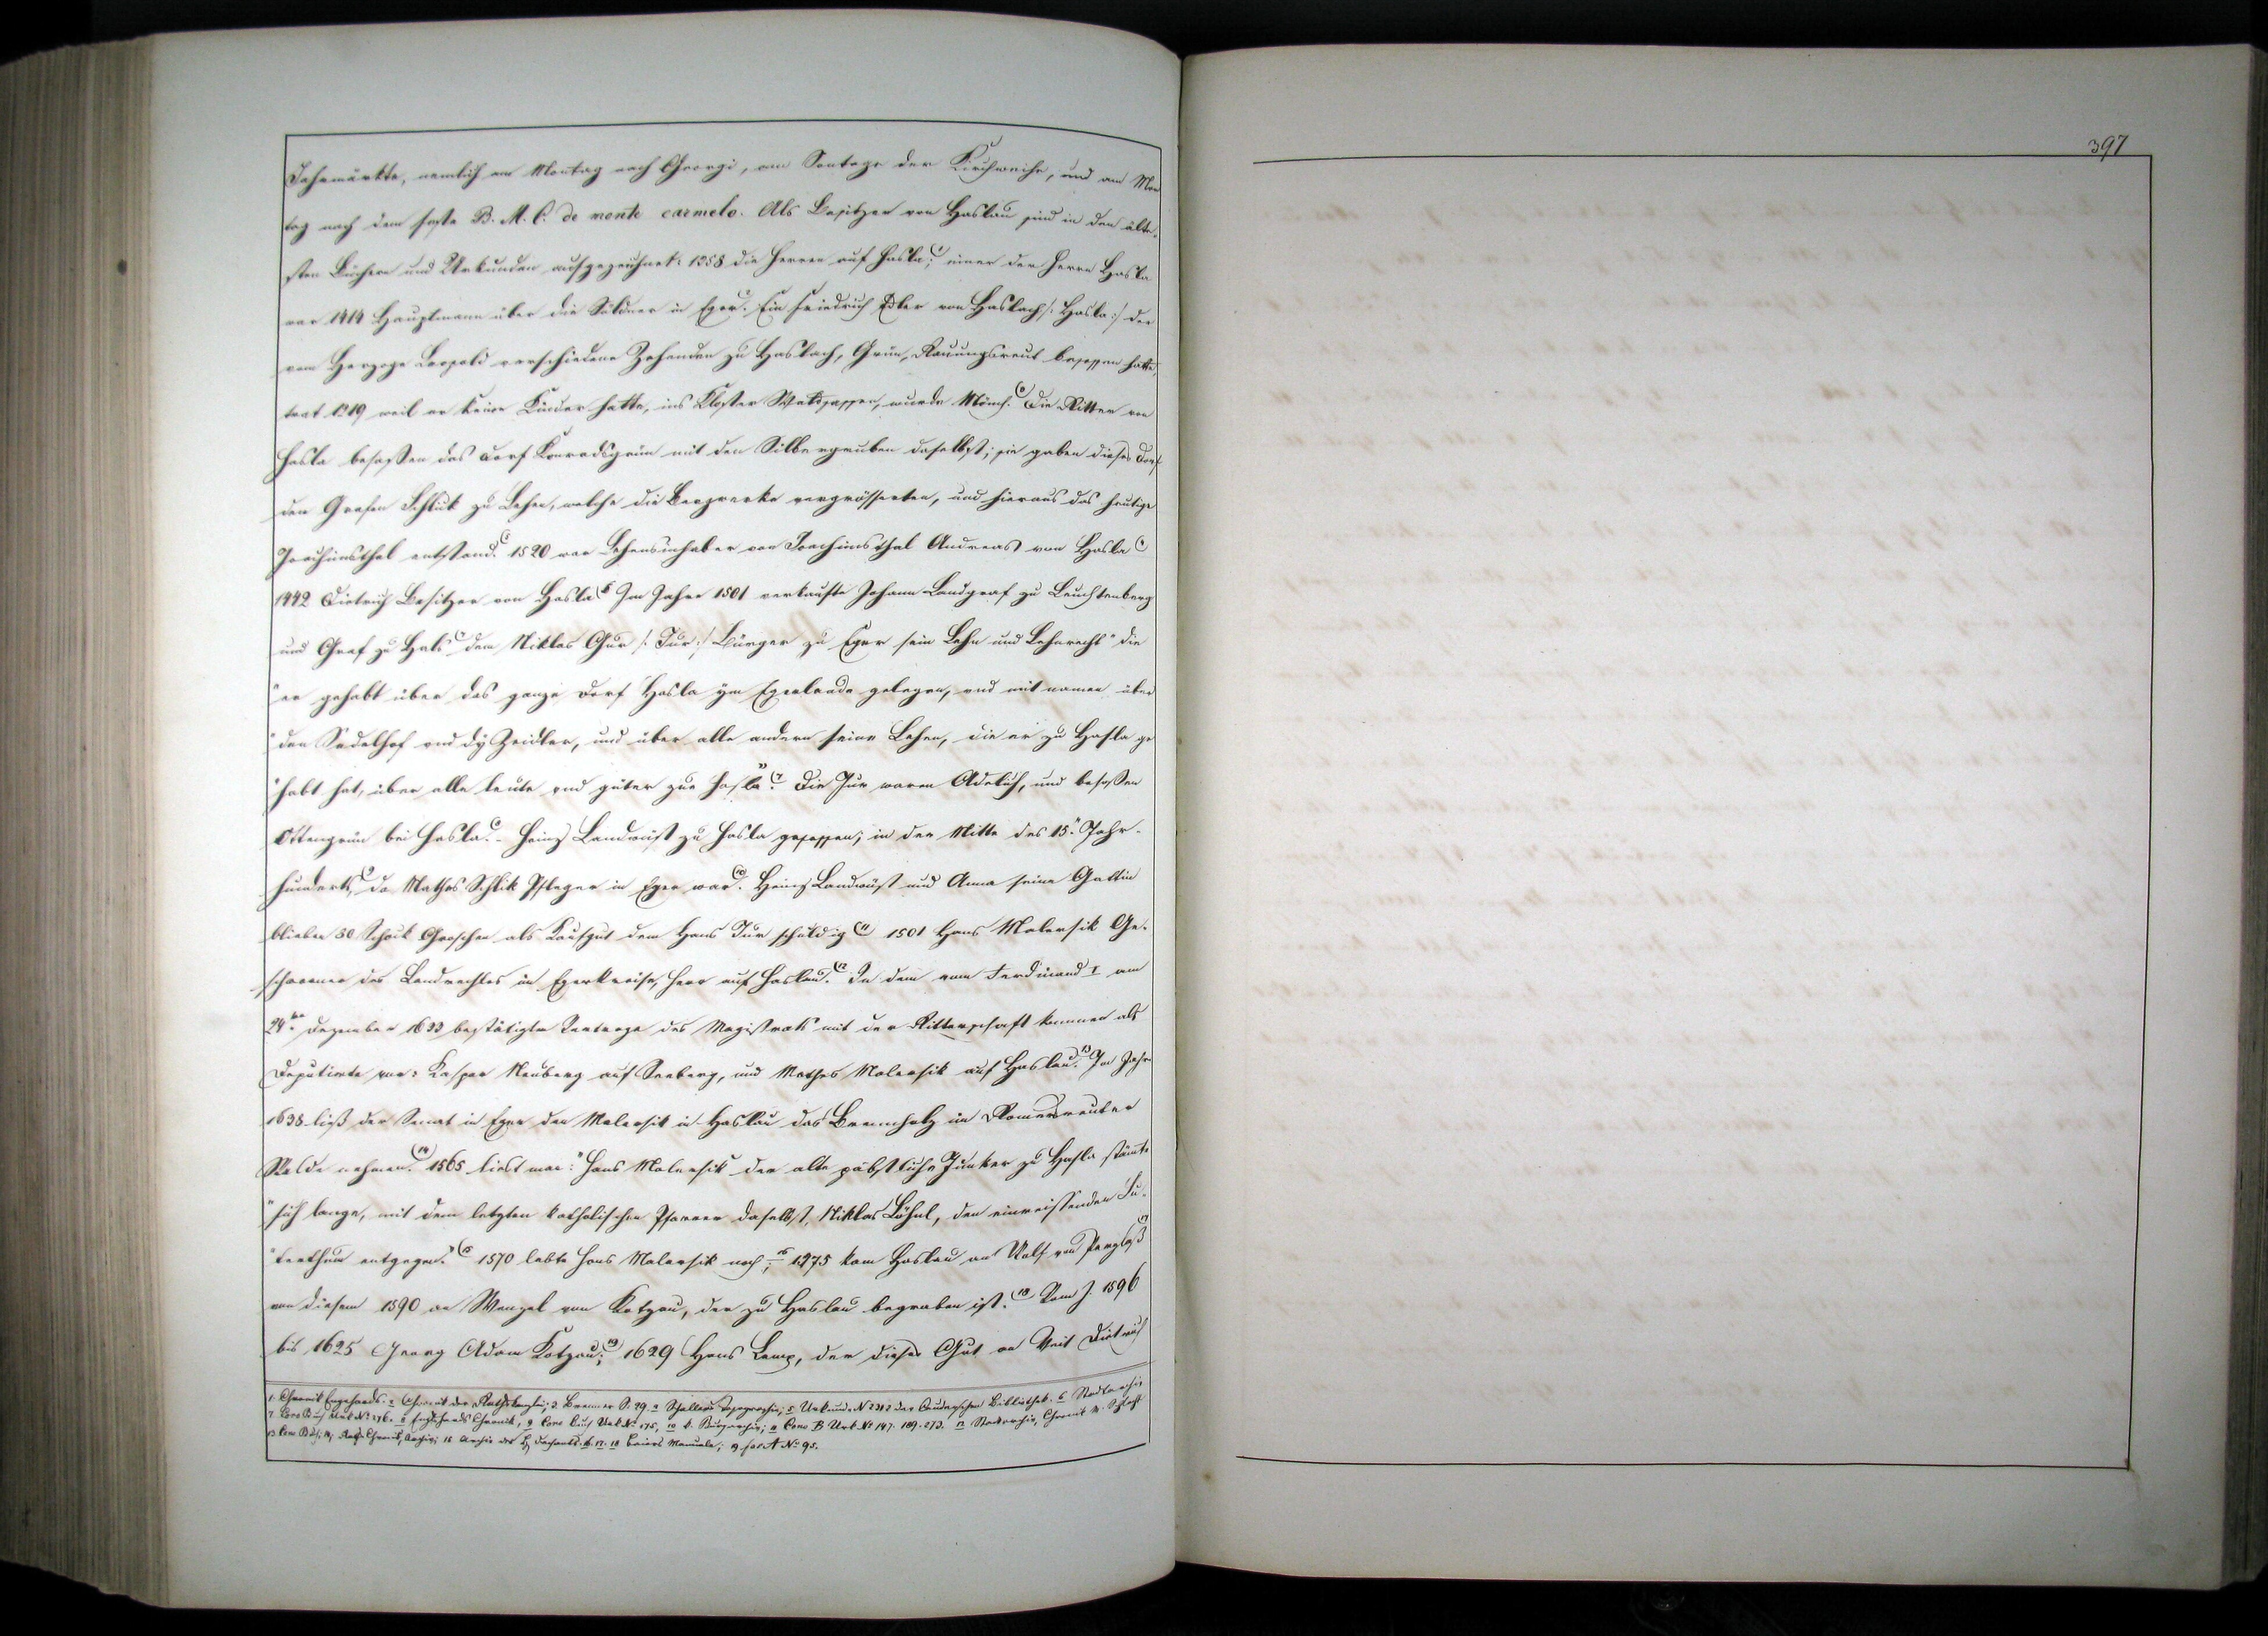 Jahrmärkte, nemlich am Montag nach Georgi, am Sontage der Kirchweihe, und am Mon
tag nach dem Feste B. M. C. de monte carmelo. Als Besitzer von Haslau sind in den älte-
sten Büchern und Urkunden aufgezeichnet: 1358 die Herren auf Hasla; (1 einer der Herrn Hasla
war 1414 Hauptmann über die Söldner in Eger. (2 Ein Friedrich Edler von Haslach /: Hasla :/ der
vom Herzoge Leopold verschiedene Zehenden zu Haslach, Grün, Rommersreut besessen hatte,
trat 1219 weil er keine Kinder hatte, ins Kloster Waldsassen, wurde Mönch. (3 Die Ritter von
Hasla besaßen das Dorf Konradsgrün mit den Silbergruben daselbst; sie gaben dieses Dorf
den Grafen Schlik zu Lehen, welche die Bergwerke vergrösserten, und hieraus das heutige
Joachimsthal entstand. 1520 war Lehensinhaber von Joachimsthal Andreas von Hasla (
1442 Dietrich Besitzer von Hasla (5 Im Jahre 1501 verkaufte Johann Landgraf zu Leuchtenberg
und Graf zu Hals dem Niklas Gur /: Jur :/ Bürger zu Eger sein Lehn und Lehnrecht "die
"er gehabt über das ganze Dorf Hasla ym Egerlande gelegen, vnd mit namen über
"den Sedelhof vnd dy Zeidler, und über alle andern seine Lehen, die er zu Hasla ge
"habt hat, über alle leute vnd güter zue Hasla" (7 Die Jur waren Adelich, und besaßen
Ottengrün bei Hasla. (8 - Heinz Landwüst zu Hasla gesessen; in der Mitte des 15. Jahr-
hunderts, (9 da Mathes Schlik Pfleger in Eger war. (10 Heinz Landwüst und Anna seine Gattin
blieben 30 Schock Groschen als Kaufgut dem Hans Jur schuldig (11 1501 Hans Malersik Ge-
schworner des Landrechtes im Egerkreise, Herr auf Haslau. (12 In dem vom Ferdinand I am
24. Dezember 1633 bestätigten Vertrage des Magistrats mit der Ritterschaft kommen als
Deputirte vor: Kaspar Neuberg auf Seeberg, und Mathes Malersik auf Haslau. (13 Im Jahre
1638 ließ der Senat in Eger den Malersik in Haslau das Brennholz im Romersreuter
Walde nehmen. (14 1565 liest man: "Hans Malersik der alte päbstliche Junker zu Hasla stämte
"sich lange, mit dem letzten katholischen Pfarrer daselbst, Niklas Löhnl, den einreissenden Lu-
"terthum entgegen." (15 1570 lebte Hans Malersik noch; 16 1575 kam Haslau an Wolf von Perglas (17
von diesem 1590 an Wenzel von Kotzau, der zu Haslau begraben ist. (18 Vom J. 1596
bis 1625 Georg Adam Kotzau; (19 1629 Hans Lamp, der dieses Gut an Veit Dietrich
1. Chronik Engelhards. 2 Chronik der Rathskanzlei; 3 Brenner S. 29. 4 Schallers Topographie; 5 Urkund. N 2312 der Bibliothek. 6 Stadtarchiv
7. Cons Buch Urk No 176. 8 Engelhards Chronik, 9 Cons Buch Urk. No 175, 10 Archiv; 11 Cons B Urk. No 147. 189. 273. 12 Stadtarchiv, Chronik
13 Cons Buch; 14 Chronik, Archiv; 15 Archiv des Dechants. 16. 17. 18 Manuale; 19 fas A No 95.
397